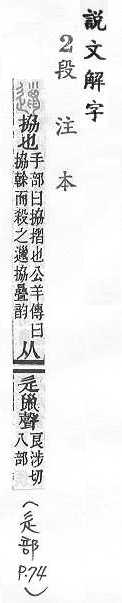 說文解字
2段注本
邋 搚也手部曰搚摺也公羊傳曰搚榦而殺之邋搚疊韵从辵巤聲良涉切八部(辵部P.74)